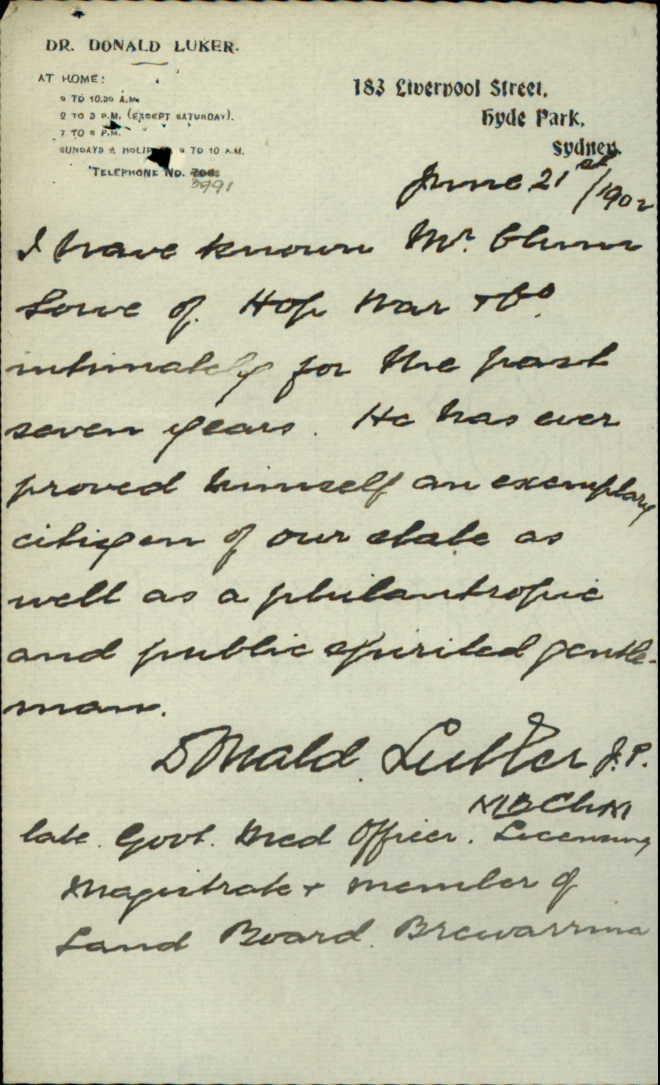 DR. DONALD LUKER.
AT HOME:
9 TO 10.30 A.M.
2 TO 3 P.M. (EXCEPT SATURDAY).
7 TO 8 P.M.
SUNDAYS & HOLID 9 TO 10 A.M.
TELEPHONE No.
3991
183 Liverpool Street,
Hyde Park,
Sydney.
June 21st/1902
I have known Mr. Chun
Lowe of Hop War & Co
intimately for the past
seven years. He has ever
proved himself an exemplary
citizen of our state as
well as a philantropic
and public spirited gentle-
man.
Donald Luker J.P.
MB ChM
late Govt. Med Officer. Licensing
Magistrate & member of
Land Board. Brewarrina